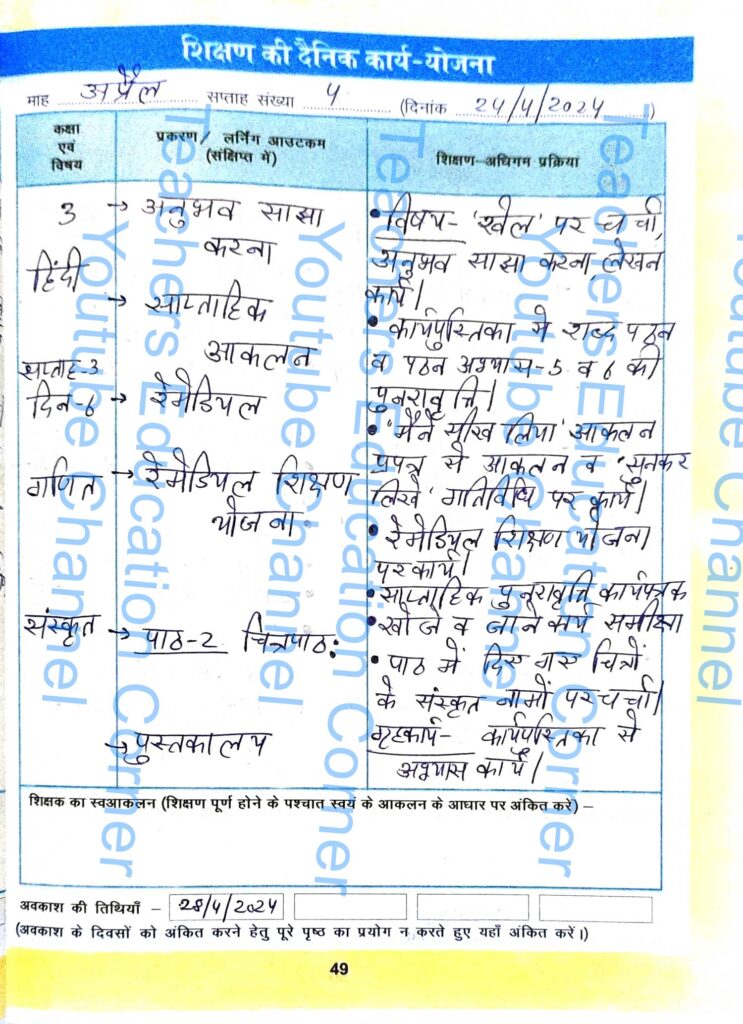 शिक्षण की दैनिक कार्य-योजना
माह अप्रैल सप्ताह संख्या ५ (दिनांक २७/५/२०२५)
कक्षा एवं विषय
प्रकरण/ लर्निंग आउटकम (संक्षिप्त में)
शिक्षण-अधिगम प्रक्रिया
3 → अनुभव साझा
करना
हिंदी
→ साप्ताहिक
आकलन
सप्ताह-3
दिन-6 → रेमेडियल
गणित → रेमेडियल शिक्षण
योजना
संस्कृत → पाठ-2 चित्रपाठः
→ पुस्तकालय
• विषय- 'खेल' पर चर्चा,
अनुभव साझा करना, लेखन
कार्य।
• कार्यपुस्तिका में शब्द पठन
व पठन अभ्यास-5 व 6 की
पुनरावृत्ति।
• 'मैंने सीख लिया' आकलन
प्रपत्र से आकलन व 'सुनकर
लिखें' गतिविधि पर कार्य।
• रेमेडियल शिक्षण योजना
पर कार्य।
• साप्ताहिक पुनरावृत्ति कार्यपत्रक
• खोजें व जानें कार्य समीक्षा
• पाठ में दिए गए चित्रों
के संस्कृत नामों पर चर्चा।
गृहकार्य- कार्यपुस्तिका से
अभ्यास कार्य।
शिक्षक का स्वआकलन (शिक्षण पूर्ण होने के पश्चात स्वयं के आकलन के आधार पर अंकित करें) –
अवकाश की तिथियाँ –
(अवकाश के दिवसों को अंकित करने हेतु पूरे पृष्ठ का प्रयोग न करते हुए यहाँ अंकित करें।)
49
Teachers Education Corner
Youtube Channel
Teachers Education Corner
Youtube Channel
Teachers Education Corner
Youtube Channel